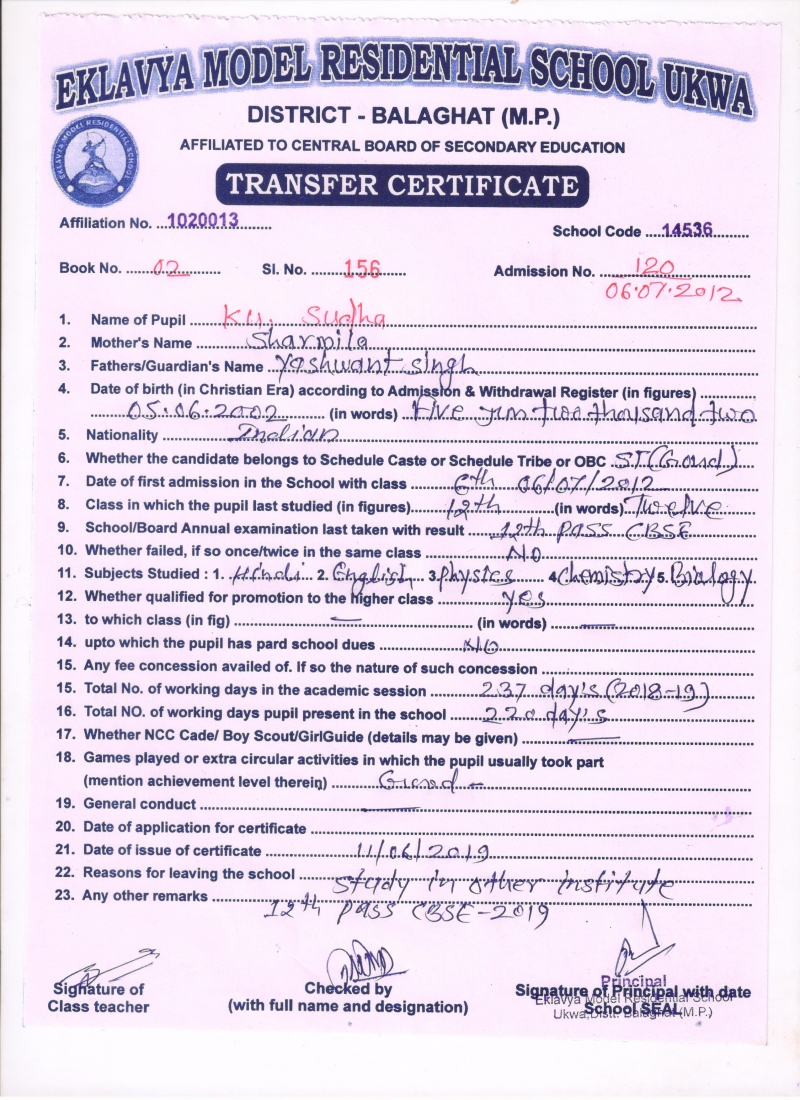 EKLAVYA MODEL RESIDENTIAL SCHOOL UKWA
DISTRICT - BALAGHAT (M.P.)
EKLAVYA MODEL RESIDENTIAL SCHOOL
AFFILIATED TO CENTRAL BOARD OF SECONDARY EDUCATION
TRANSFER CERTIFICATE
Affiliation No. ...1020013
School Code ....14536
Book No. 02 Sl. No. 156 Admission No. 120
06.07.2012
1. Name of Pupil Ku. Sudha
2. Mother's Name Sharmila
3. Fathers/Guardian's Name Yashwant singh
4. Date of birth (in Christian Era) according to Admission & Withdrawal Register (in figures)
05.06.2002 (in words) Five jun two thousand two
5. Nationality Indian
6. Whether the candidate belongs to Schedule Caste or Schedule Tribe or OBC ST (Gond)
7. Date of first admission in the School with class 6th 06/07/2012
8. Class in which the pupil last studied (in figures) 12th (in words) Twelve
9. School/Board Annual examination last taken with result 12th PASS CBSE
10. Whether failed, if so once/twice in the same class NO
11. Subjects Studied : 1. Hindi 2. English 3. physics 4 chemistry 5. Biology
12. Whether qualified for promotion to the higher class yes
13. to which class (in fig) — (in words) —
14. upto which the pupil has pard school dues NO
15. Any fee concession availed of. If so the nature of such concession
15. Total No. of working days in the academic session 237 day's (2018-19)
16. Total NO. of working days pupil present in the school 220 day's
17. Whether NCC Cade/ Boy Scout/GirlGuide (details may be given) —
18. Games played or extra circular activities in which the pupil usually took part
(mention achievement level therein) —
19. General conduct —
20. Date of application for certificate
21. Date of issue of certificate 11/06/2019
22. Reasons for leaving the school study in other institute
23. Any other remarks 12th PASS CBSE-2019
Signature of
Class teacher
Checked by
(with full name and designation)
Principal
Signature of Principal with date
Eklavya Model Residential School
School SEAL
Ukwa, Distt. Balaghat (M.P.)